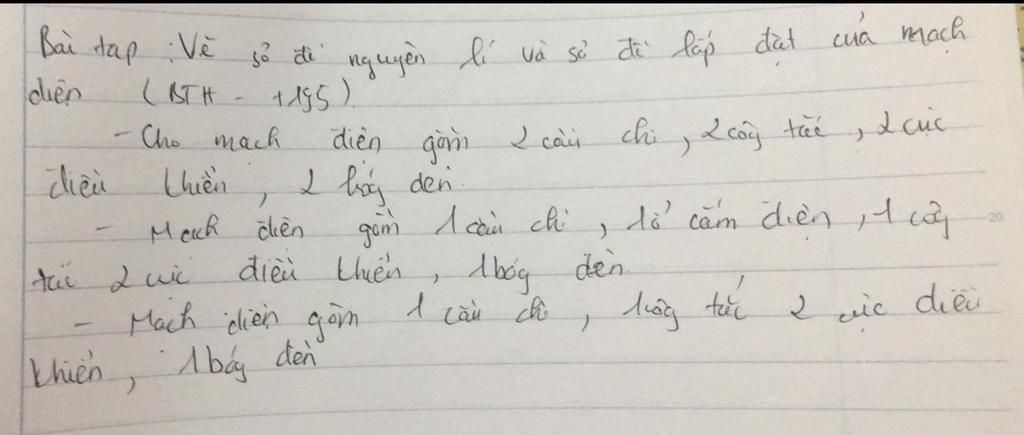 Bài tap : Vẽ sơ đồ nguyên lí và sơ đồ lắp đặt của mạch
điện (BTH - t195)
- Cho mạch điện gồm 2 cầu chì, 2 công tắc, 2 cực
điều khiển, 2 bóng đèn.
- Mạch điện gồm 1 cầu chì, 1 ổ cắm điện, 1 công
tắc 2 cực điều khiển, 1 bóng đèn.
- Mạch điện gồm 1 cầu chì, 1 công tắc 2 cực điều
khiển, 1 bóng đèn
20